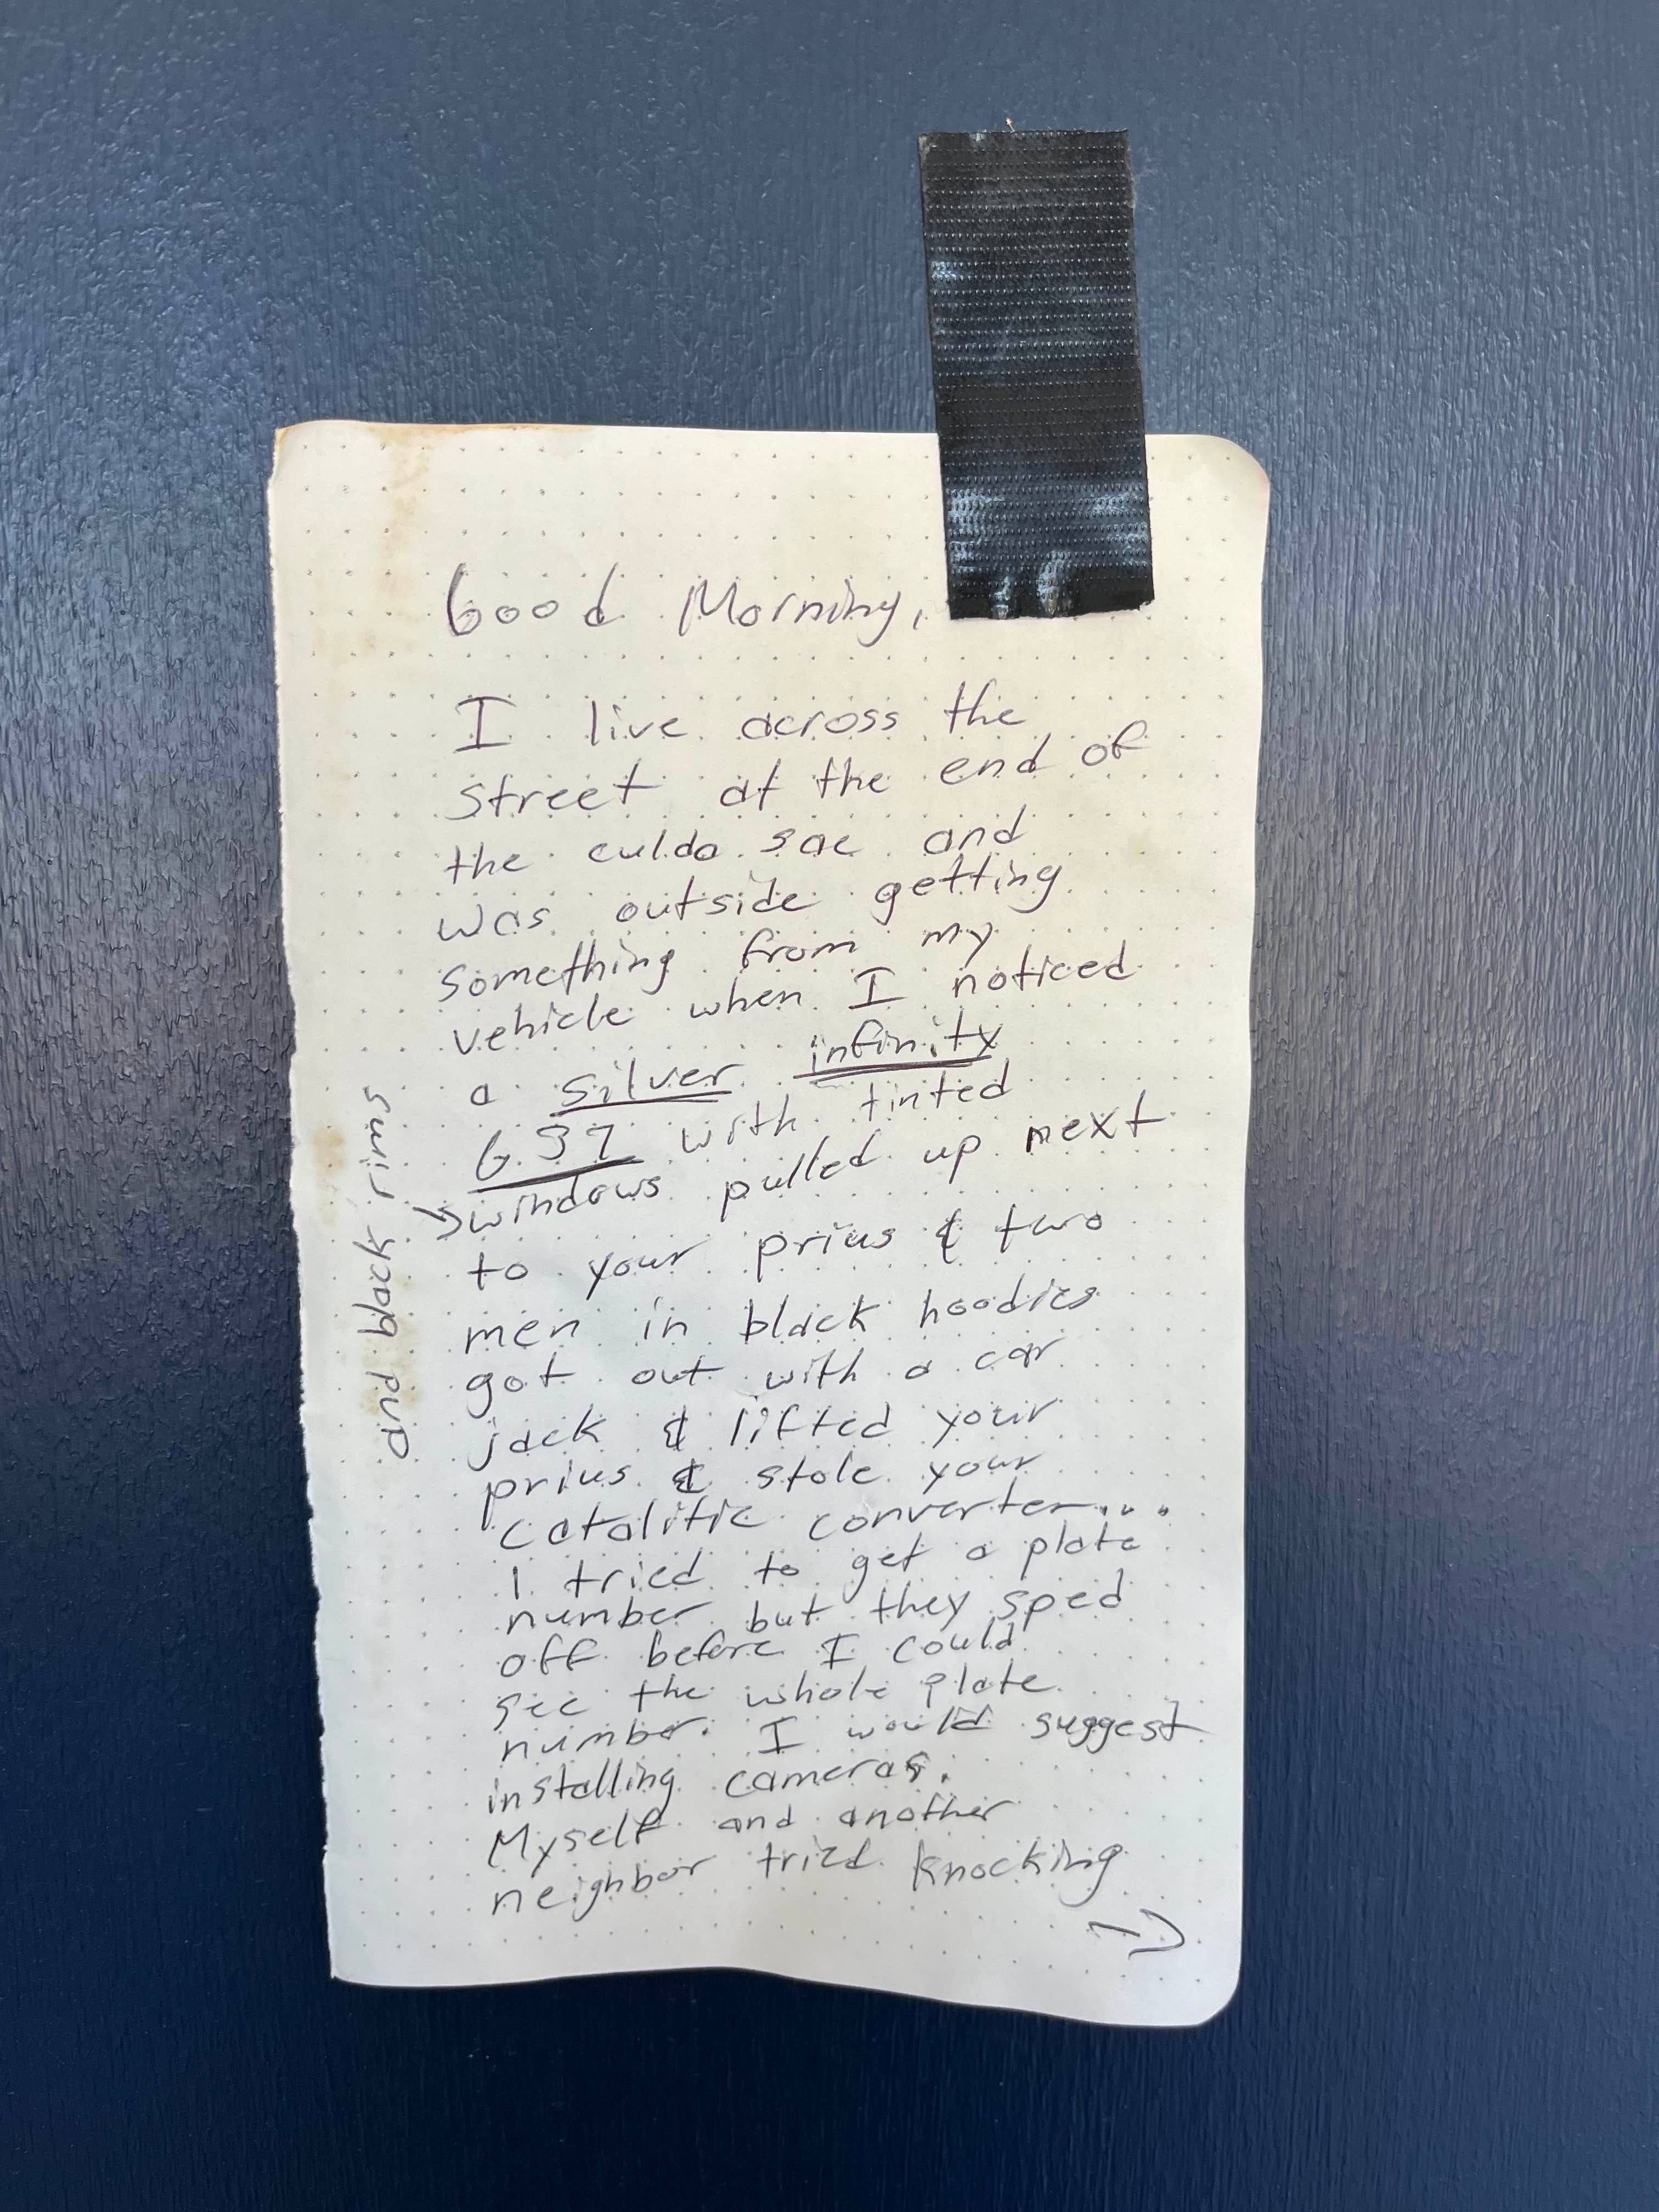 Good Morning,
I live across the
street at the end of
the culda sac and
was outside getting
something from my
vehicle when I noticed
a silver infinity
G37 with tinted
windows pulled up next
and black rims
to your prius & two
men in black hoodies
got out with a car
jack & lifted your
prius & stole your
catalitic converter...
I tried to get a plate
number but they sped
off before I could
see the whole plate
number. I would suggest
installing cameras.
Myself and another
neighbor tried knocking
→